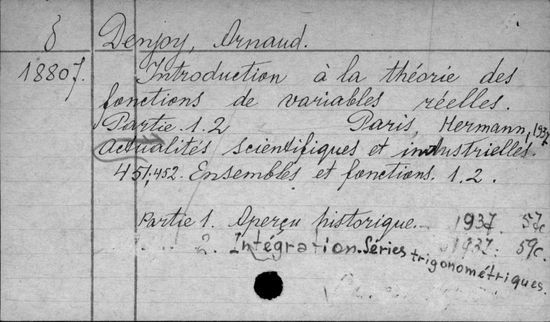 8 Denjoy, Arnaud.
18807. Introduction à la théorie des
fonctions de variables réelles.
Partie 1. 2 Paris, Hermann, 1937
Actualités scientifiques et industrielles.
451,452. Ensembles et fonctions. 1. 2.
Partie 1. Aperçu historique. 1937. 57c.
2. Intégration. Séries trigonométriques. 1937. 59c.